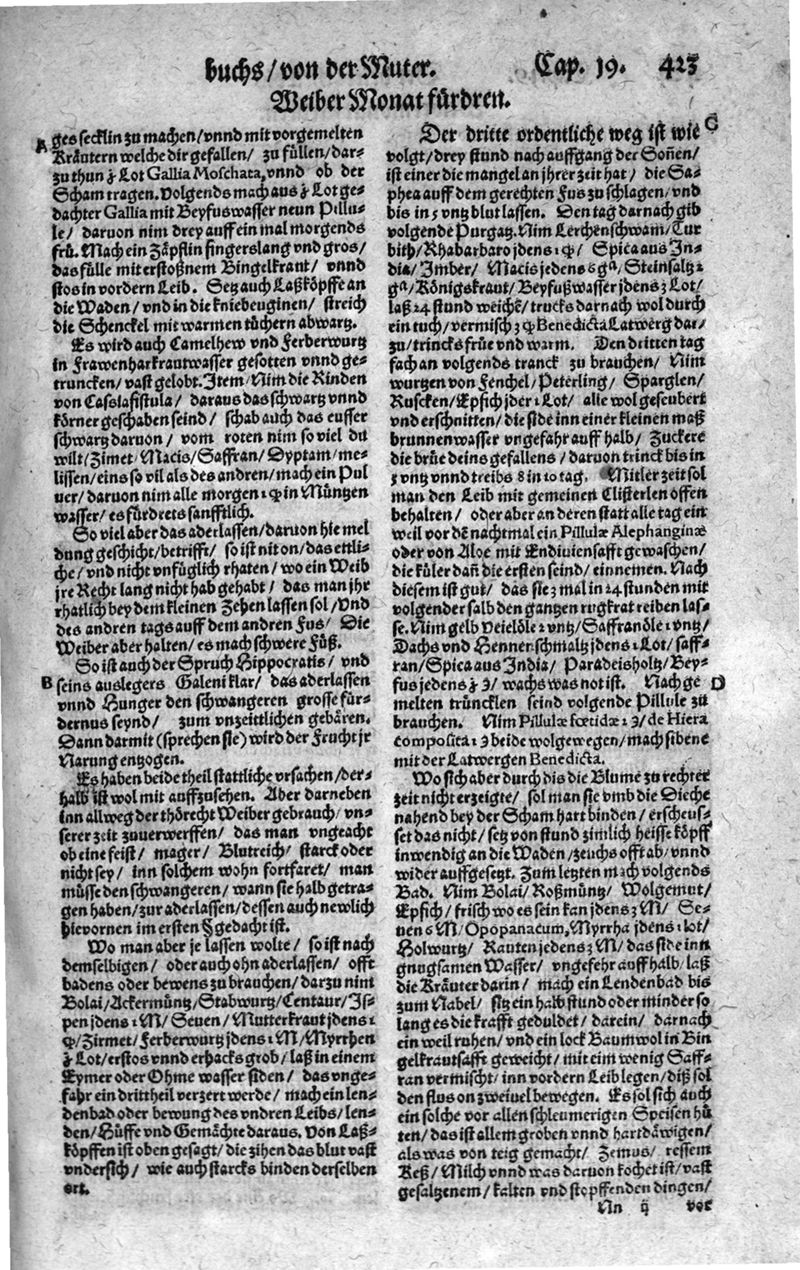 buchs / von der Muter. Cap. 19. 423
Weiber Monat fürdren.
A ges secklin zu machen / vnnd mit vorgemelten
Kräutern welche dir gefallen / zu füllen / dar-
zu thun ʒ Lot Gallia Moschata, vnnd ob der
Scham tragen. Volgends mach aus ʒ Lot ge-
dachter Gallia mit Beyfuswasser neun Pillu-
le / daruon nim drey auff ein mal morgends
frü. Mach ein Zäpflin fingerslang vnd gros /
das fülle mit erstoßnem Bingelkraut / vnnd
stos in vordern Leib. Setz auch Laßköpffe an
die Waden / vnd in die kniebeuginen / streich
die Schenckel mit warmen tüchern abwartz.
Es wird auch Camelhew vnd Ferberwurtz
in Frawenharkrautwasser gesotten vnnd ge-
truncken / vast gelobt. Item / Nim die Rinden
von Cassiafistula / daraus das schwartz vnnd
körner geschaben seind / schab auch das eusser
schwartz daruon / vom roten nim so viel du
wilt / Zimet / Macis / Saffran / Dyptam / me-
lissen / eins so vil als des andren / mach ein Pul
uer / daruon nim alle morgen 1 quintlin Müntzen
wasser / es fürdrets sanfftlich.
So viel aber das aderlassen / daruon hie mel
dung geschicht / betrifft / so ist nit on / das ettli-
che / vnd nicht vnfüglich rhaten / wo ein Weib
jre Recht lang nicht hab gehabt / das man jhr
rhatlich bey dem kleinen Zehen lassen sol / vnd
des andren tags auff dem andren Fus / Die
Weiber aber halten / es mach schwere Füß.
So ist auch der Spruch Hippocratis / vnd
B seins auslegers Galeni klar / das aderlassen
vnnd Hunger den schwangeren grosse für-
dernus seynd / zum vnzeittlichen gebären.
Dann darmit (sprechen sie) wird der Frucht jr
Narung entzogen.
Es haben beide theil stattliche vrsachen / der-
halb ist wol mit auffzusehen. Aber darneben
inn allweg der thörecht Weiber gebrauch / vn-
serer zeit zuuerwerffen / das man vngeacht
ob eine feist / mager / Blutreich / starck oder
nicht sey / inn solchem wohn fortfaret / man
müsse den schwangeren / wann sie halb getra-
gen haben / zur aderlassen / dessen auch newlich
hieuornen im ersten § gedacht ist.
Wo man aber je lassen wolte / so ist nach
demselbigen / oder auch ohn aderlassen / offt
badens oder bewens zu brauchen / darzu nim
Bolai / Ackermüntz / Stabwurtz / Centaur / Is-
pen jdens 1 M / Seuen / Mutterkraut jdens 1
/ Zirmet / Ferberwurtz jdens 1 M / Myrrhen
ʒ Lot / erstos vnnd erhacks grob / laß in einem
Eymer oder Ohme wasser siden / das vnge-
fahr ein drittheil verzert werde / mach ein len-
denbad oder bewung des vndren Leibs / len-
den / Hüffe vnd Gemächte daraus. Von Laß-
köpffen ist oben gesagt / die zihen das blut vast
vndersich / wie auch starcks binden derselben
ort.
Der dritte ordentliche weg ist wie C
volgt / drey stund nach auffgang der Soñen /
ist einer die mangel an jhrer zeit hat / die Sa-
phea auff dem gerechten Fus zu schlagen / vnd
bis in 3 vntz blut lassen. Den tag darnach gib
volgende Purgatz. Nim Lerchenschwam / Tur
bith / Rhabarbaro jdens 1 / Spica aus In-
dia / Imber / Macis jedens 6 gª / Steinsaltz 2
gª / Königskraut / Beyfußwasser jdens 3 Lot /
laß 24 stund weichẽ / trucks darnach wol durch
ein tuch / vermisch 3 Benedicta Latwerg dar-
zu / trincks früe vnd warm. Den dritten tag
fach an volgends tranck zu brauchen / Nim
wurtzen von Fenchel / Peterling / Sparglen /
Ruscken / Epfich jder 1 Lot / alle wol geseubert
vnd erschnitten / die side inn einer kleinen maß
brunnenwasser vngefahr auff halb / Zuckere
die brüe deins gefallens / daruon trinck bis in
3 vntz vnnd treibs 8 in 10 tag. Mitler zeit sol
man den Leib mit gemeinen Clisterlen offen
behalten / oder aber an deren statt alle tag ein
weil vor dẽ nachtmal ein Pillulæ Alephanginæ
oder von Aloe mit Endiuiensafft gewaschen /
die küler dañ die ersten seind / einnemen. Nach
diesem ist gut / das sie 3 mal in 24 stunden mit
volgender salb den gantzen rugkrat reiben las-
se. Nim gelb Veielöle 2 vntz / Saffranöle 1 vntz /
Dachs vnd Hennerschmaltz jdens 1 Lot / saff-
ran / Spica aus India / Paradeisholtz / Bey-
fus jedens ʒ Ɔ / wachs was not ist. Nach ge D
melten trüncklen seind volgende Pillule zu
brauchen. Nim Pillulæ fœtidæ 1 Ɔ / de Hiera
composita 1 Ɔ beide wolgewegen / mach sibene
mit der Latwergen Benedicta.
Wo sich aber durch dis die Blume zu rechter
zeit nicht erzeigte / sol man sie vmb die Dieche
nahend bey der Scham hart binden / erscheus-
set das nicht / setz von stund zimlich heisse köpff
inwendig an die Waden / zeuchs offt ab / vnnd
wider auffgesetzt. Zum letzten mach volgends
Bad. Nim Bolai / Roßmüntz / Wolgemut /
Epfich / frisch wo es sein kan jdens 3 M / Se-
uen 6 M / Opopanacum, Myrrha jdens 1 Lot /
Holwurtz / Rauten jedens 3 M / das side inn
gnugsamen Wasser / vngefehr auff halb / laß
die Kräuter darin / mach ein Lendenbad bis
zum Nabel / sitz ein halb stund oder minder so
lang es die krafft geduldet / darein / darnach
ein weil ruhen / vnd ein lock Baumwol in Bin
gelkrautsafft geweicht / mit eim wenig Saff-
ran vermischt / inn vordern Leib legen / diß sol
den flus on zweiuel bewegen. Es sol sich auch
ein solche vor allen schleumerigen Speisen hü
ten / das ist allem groben vnnd hartdäwigen /
als was von teig gemacht / Zemus / ressem
Keß / Milch vnnd was daruon kochet ist / vast
gesaltzenem / kalten vnd stopffenden dingen /
Nn ij vor